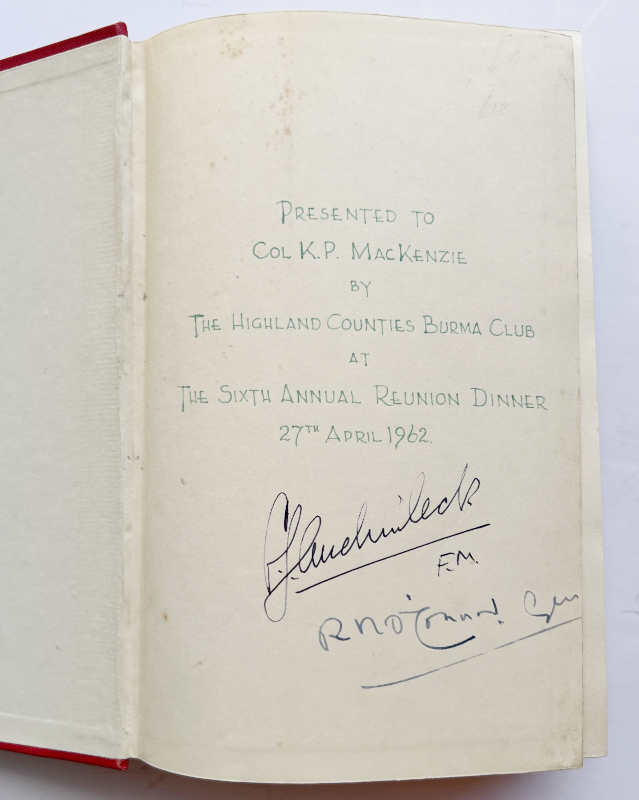 PRESENTED TO
COL K.P. MACKENZIE
BY
THE HIGHLAND COUNTIES BURMA CLUB
AT
THE SIXTH ANNUAL REUNION DINNER
27TH APRIL 1962.
C.J. Auchinleck
F.M.
R N O'Connor.